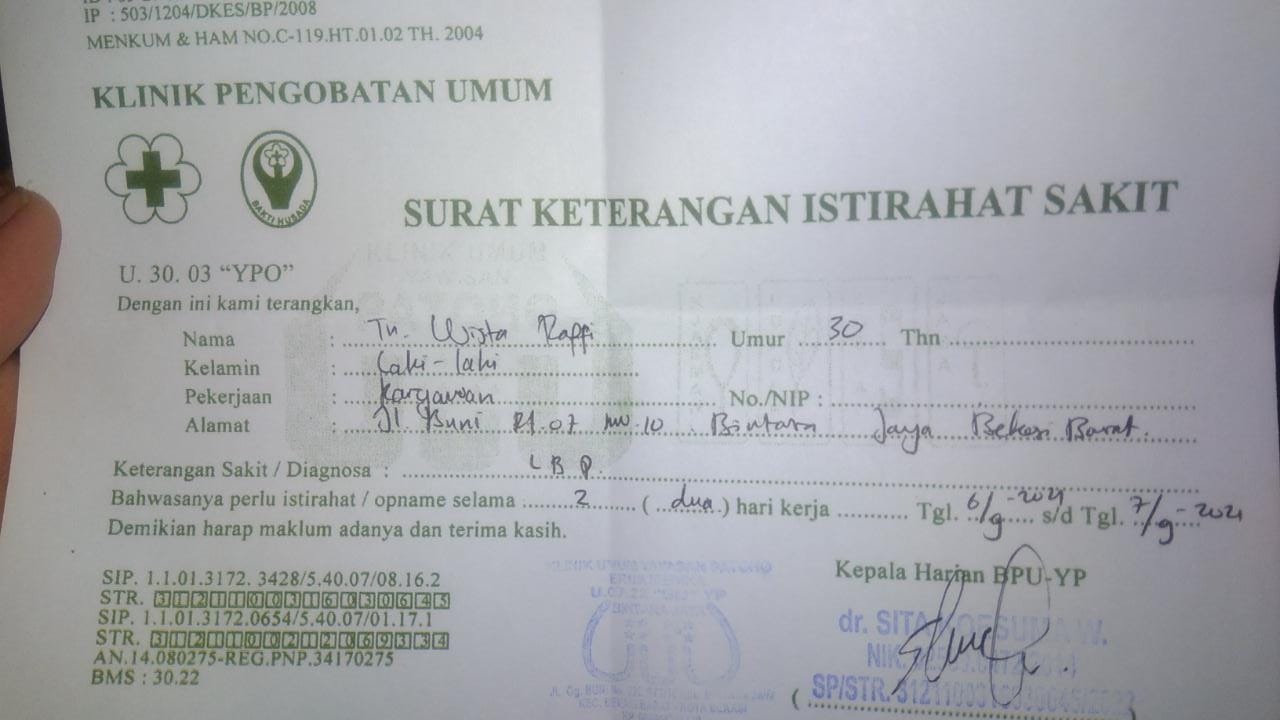 IP : 503/1204/DKES/BP/2008
MENKUM & HAM NO.C-119.HT.01.02 TH. 2004
KLINIK PENGOBATAN UMUM
BAKTI HUSADA
SURAT KETERANGAN ISTIRAHAT SAKIT
U. 30. 03 “YPO”
Dengan ini kami terangkan,
Nama : Tn. Wista Raffi Umur 30 Thn
Kelamin : Laki-laki
Pekerjaan : Karyawan No./NIP :
Alamat : Jl. Buni Rt.07 rw.10 Bintara Jaya Bekasi Barat.
Keterangan Sakit / Diagnosa : LBP.
Bahwasanya perlu istirahat / opname selama 2 (dua) hari kerja Tgl. 6/9-2021 s/d Tgl. 7/9-2021
Demikian harap maklum adanya dan terima kasih.
SIP. 1.1.01.3172. 3428/5.40.07/08.16.2
STR. 3121100316030645
SIP. 1.1.01.3172.0654/5.40.07/01.17.1
STR. 3121100212069334
AN.14.080275-REG.PNP.34170275
BMS : 30.22
KLINIK UMUM YAYASAN
Kepala Harian BPU-YP
dr. SITA
NIK.
SP/STR.